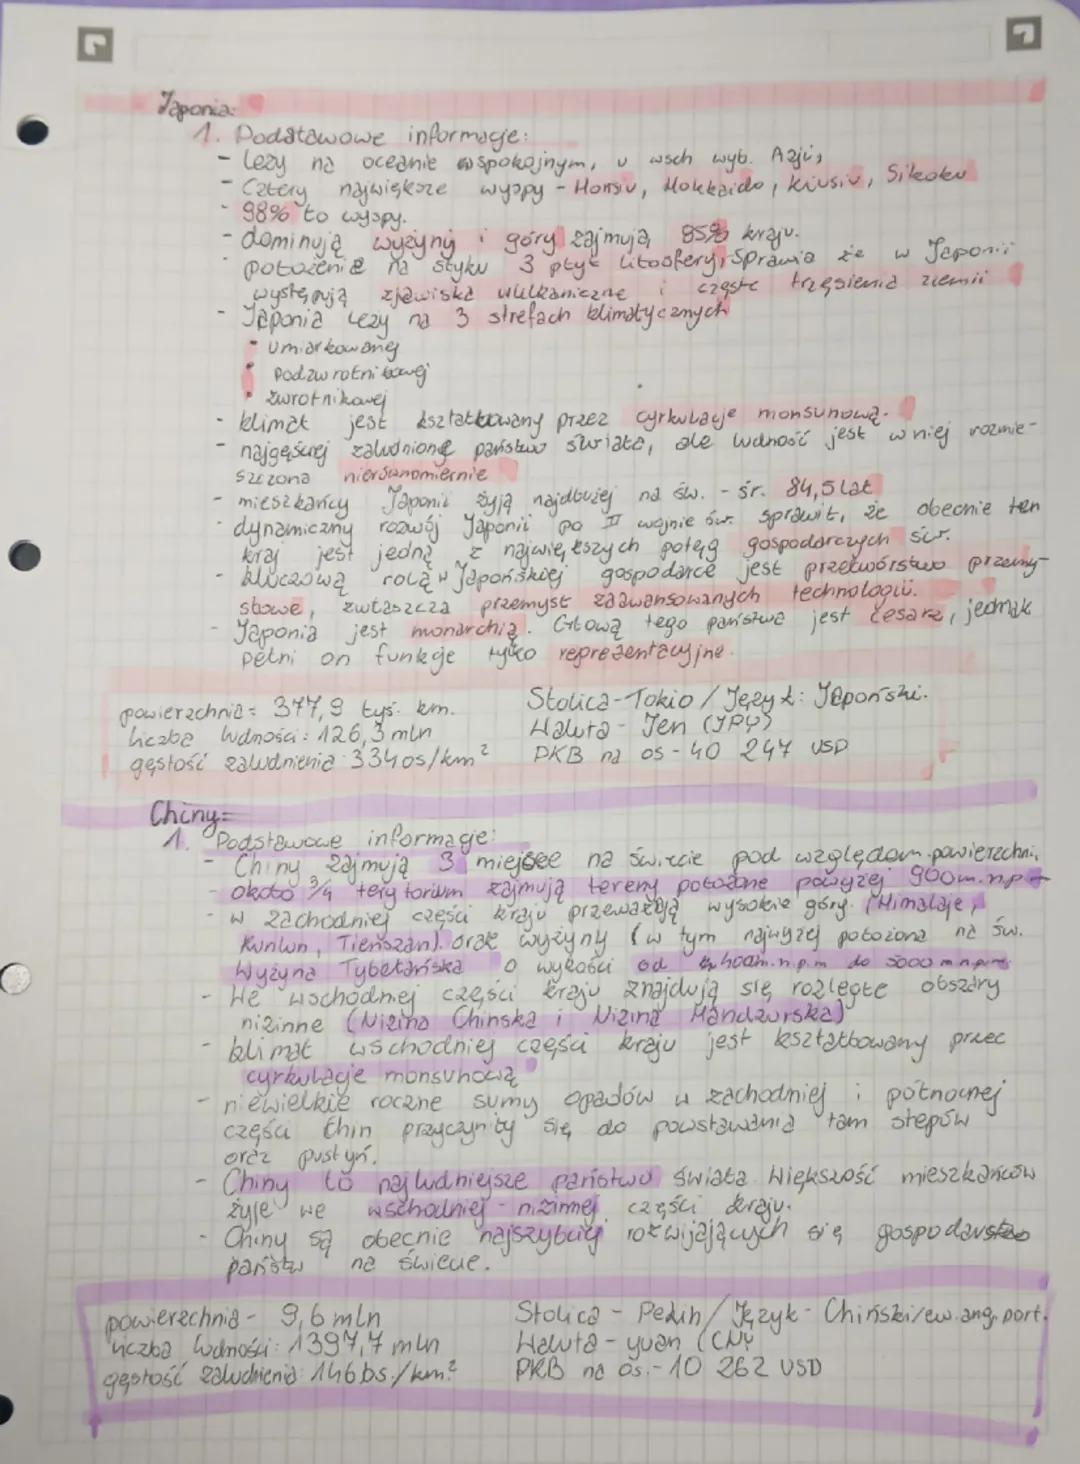 Japonia:
1. Podstawowe informacje:
- leży na oceanie spokojnym, u wsch wyb. Azji,
- Cztery największe wyspy - Honsiu, Hokkaido, Kiusiu, Sikoku
- 98% to wyspy.
- dominują wyżyny i góry zajmują 85% kraju.
- położenie na styku 3 płyt litosfery, sprawia że w Japonii
występują zjawiska wulkaniczne i częste trzęsienia ziemii
- Japonia leży na 3 strefach klimatycznych
• umiarkowanej
• podzwrotnikowej
• zwrotnikowej
- klimat jest kształtkowany przez cyrkulacje monsunową.
- najgęściej zaludnione państwo świata, ale ludność jest w niej rozmie-
szczona nierównomiernie
- mieszkańcy Japonii żyją najdłużej na św. - śr. 84,5 lat
- dynamiczny rozwój Japonii po II wojnie św. sprawił, że obecnie ten
kraj jest jedną z największych potęg gospodarczych św.
- kluczową rolą w Japońskiej gospodarce jest przetwórstwo przemy-
słowe, zwłaszcza przemysł zaawansowanych technologii.
- Japonia jest monarchią. Głową tego państwa jest cesarz, jednak
pełni on funkcje tylko reprezentacyjne.
powierzchnia: 377,9 tyś. km.
liczba ludności: 126,3 mln
gęstość zaludnienia: 334 os/km²
Stolica - Tokio / Język: Japoński.
Waluta - Jen (JPY)
PKB na os - 40 247 USD
Chiny:
1. Podstawowe informacje:
- Chiny zajmują 3 miejsce na świecie pod względem powierzchni,
- około 3/4 terytorium zajmują tereny położone powyżej 900m.n.p
- w zachodniej części kraju przeważają wysokie góry. (Himalaje,
Kunlun, Tienszan). oraz wyżyny (w tym najwyżej położona na św.
Wyżyna Tybetańska o wykości od m.n.p.m do 5000 m n.p.m.
- We wschodniej części kraju znajdują się rozległe obszary
nizinne (Nizina Chińska i Nizina Mandżurska)
- klimat wschodniej części kraju jest kształtkowany przec
cyrkulacje monsunową
- niewielkie roczne sumy opadów w zachodniej i północnej
części Chin przyczyniły się do powstawania tam stepów
oraz pustyń.
- Chiny to najludniejsze państwo świata. Większość mieszkańców
żyje we wschodniej - nizinnej części kraju.
- Chiny są obecnie najszybciej rozwijających się gospodarstwo
państw na świecie.
powierzchnia - 9,6 mln
liczba ludności: 1397,7 mln
gęstość zaludnienia: 146 os./km²
Stolica - Pekin / Język - Chiński/ew. ang, port.
Waluta - yuan (CNY
PKB na os. - 10 262 USD